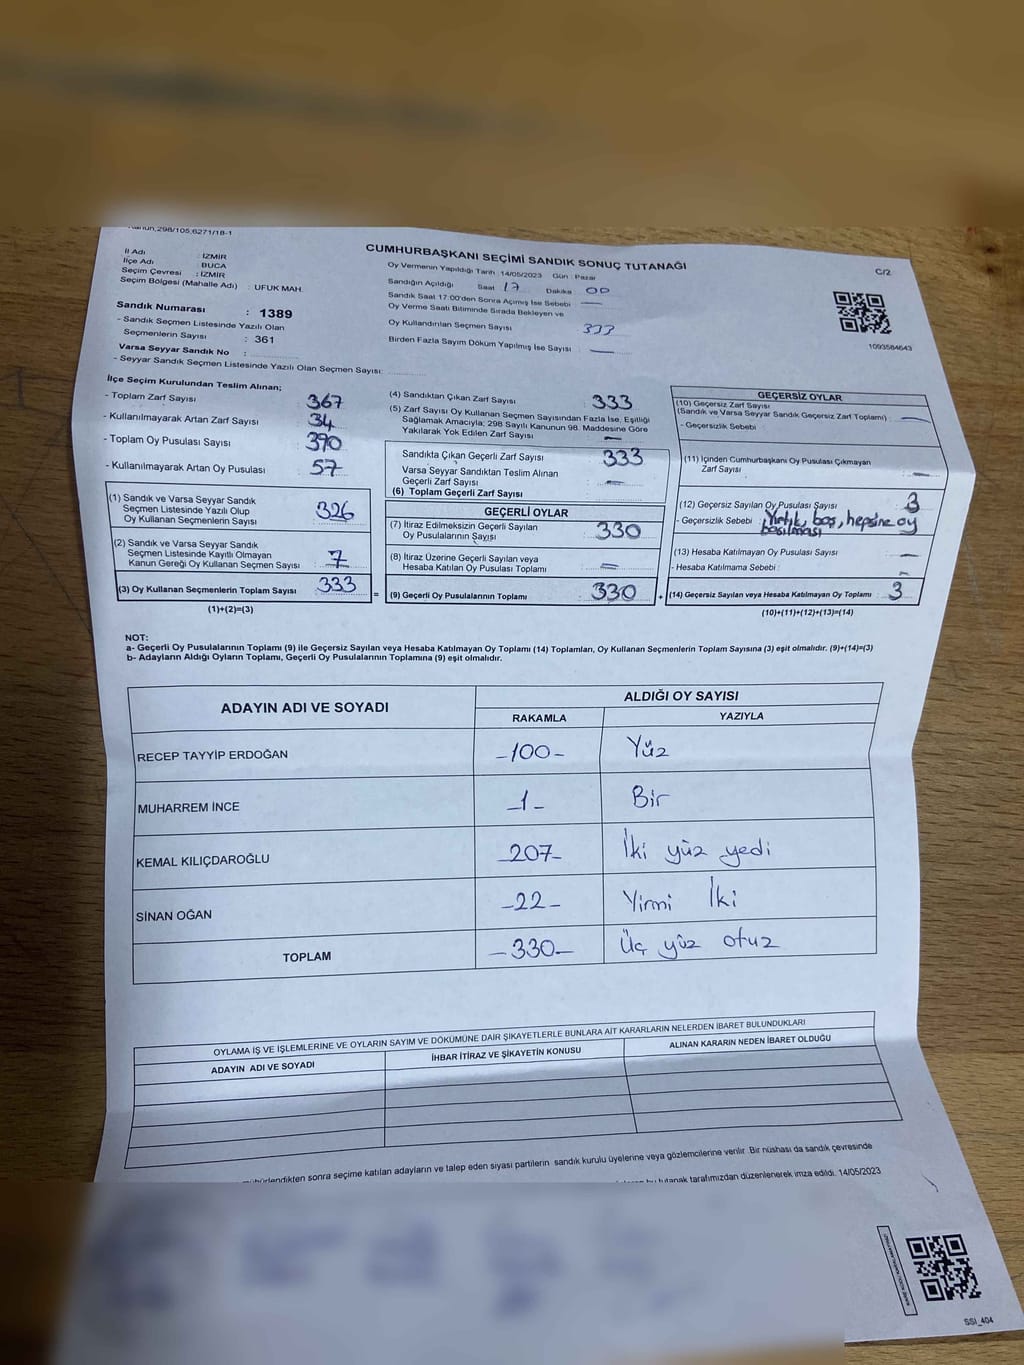 Kanun,298/105,6271/18-1
CUMHURBAŞKANI SEÇİMİ SANDIK SONUÇ TUTANAĞI
C/2
İl Adı : İZMİR
İlçe Adı : BUCA
Seçim Çevresi : İZMİR
Seçim Bölgesi (Mahalle Adı) : UFUK MAH.
Oy Vermenin Yapıldığı Tarih : 14/05/2023 Gün : Pazar
Sandığın Açıldığı Saat 17 Dakika 00
Sandık Saat 17:00'den Sonra Açılmış İse Sebebi —
Oy Verme Saati Bitiminde Sırada Bekleyen ve
Oy Kullandırılan Seçmen Sayısı 333
Birden Fazla Sayım Döküm Yapılmış İse Sayısı : —
1093584643
Sandık Numarası : 1389
- Sandık Seçmen Listesinde Yazılı Olan
Seçmenlerin Sayısı : 361
Varsa Seyyar Sandık No :
- Seyyar Sandık Seçmen Listesinde Yazılı Olan Seçmen Sayısı:
İlçe Seçim Kurulundan Teslim Alınan;
- Toplam Zarf Sayısı 367
- Kullanılmayarak Artan Zarf Sayısı 34
- Toplam Oy Pusulası Sayısı 390
- Kullanılmayarak Artan Oy Pusulası 57
(1) Sandık ve Varsa Seyyar Sandık
Seçmen Listesinde Yazılı Olup
Oy Kullanan Seçmenlerin Sayısı 326
(2) Sandık ve Varsa Seyyar Sandık
Seçmen Listesinde Kayıtlı Olmayan
Kanun Gereği Oy Kullanan Seçmen Sayısı : 7
(3) Oy Kullanan Seçmenlerin Toplam Sayısı : 333
(1)+(2)=(3)
=
(4) Sandıktan Çıkan Zarf Sayısı : 333
(5) Zarf Sayısı Oy Kullanan Seçmen Sayısından Fazla İse, Eşitliği
Sağlamak Amacıyla; 298 Sayılı Kanunun 98. Maddesine Göre
Yakılarak Yok Edilen Zarf Sayısı : —
Sandıkta Çıkan Geçerli Zarf Sayısı : 333
Varsa Seyyar Sandıktan Teslim Alınan
Geçerli Zarf Sayısı : —
(6) Toplam Geçerli Zarf Sayısı
GEÇERLİ OYLAR
(7) İtiraz Edilmeksizin Geçerli Sayılan
Oy Pusulalarının Sayısı : 330
(8) İtiraz Üzerine Geçerli Sayılan veya
Hesaba Katılan Oy Pusulası Toplamı : —
(9) Geçerli Oy Pusulalarının Toplamı : 330
+
GEÇERSİZ OYLAR
(10) Geçersiz Zarf Sayısı
(Sandık ve Varsa Seyyar Sandık Geçersiz Zarf Toplamı) : —
- Geçersizlik Sebebi :
(11) İçinden Cumhurbaşkanı Oy Pusulası Çıkmayan
Zarf Sayısı : —
(12) Geçersiz Sayılan Oy Pusulası Sayısı : 3
- Geçersizlik Sebebi : Yırtık, boş, hepsine oy
basılması
(13) Hesaba Katılmayan Oy Pusulası Sayısı : —
- Hesaba Katılmama Sebebi : —
(14) Geçersiz Sayılan veya Hesaba Katılmayan Oy Toplamı : 3
(10)+(11)+(12)+(13)=(14)
NOT:
a- Geçerli Oy Pusulalarının Toplamı (9) ile Geçersiz Sayılan veya Hesaba Katılmayan Oy Toplamı (14) Toplamları, Oy Kullanan Seçmenlerin Toplam Sayısına (3) eşit olmalıdır. (9)+(14)=(3)
b- Adayların Aldığı Oyların Toplamı, Geçerli Oy Pusulalarının Toplamına (9) eşit olmalıdır.
ADAYIN ADI VE SOYADI ALDIĞI OY SAYISI
RAKAMLA YAZIYLA
RECEP TAYYİP ERDOĞAN -100- Yüz
MUHARREM İNCE -1- Bir
KEMAL KILIÇDAROĞLU -207- İki yüz yedi
SİNAN OĞAN -22- Yirmi İki
TOPLAM -330- Üç yüz otuz
OYLAMA İŞ VE İŞLEMLERİNE VE OYLARIN SAYIM VE DÖKÜMÜNE DAİR ŞİKAYETLERLE BUNLARA AİT KARARLARIN NELERDEN İBARET BULUNDUKLARI
ADAYIN ADI VE SOYADI İHBAR İTİRAZ VE ŞİKAYETİN KONUSU ALINAN KARARIN NEDEN İBARET OLDUĞU
mühürlendikten sonra seçime katılan adayların ve talep eden siyasi partilerin sandık kurulu üyelerine veya gözlemcilerine verilir. Bir nüshası da sandık çevresinde
bu tutanak tarafımızdan düzenlenerek imza edildi. 14/05/2023
SSI_404